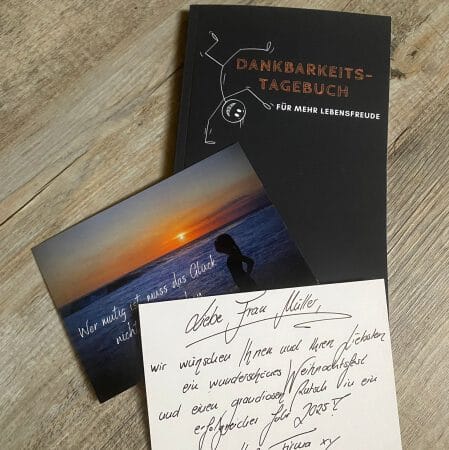 DANKBARKEITS-
TAGEBUCH
FÜR MEHR LEBENSFREUDE
Wer mutig ist muss das Glück
nicht
Liebe Frau Müller,
wir wünschen Ihnen und Ihren Liebsten
ein wunderschönes Weihnachtsfest
und einen grandiosen Rutsch in ein
erfolgreiches Jahr 2025!
Firma xy